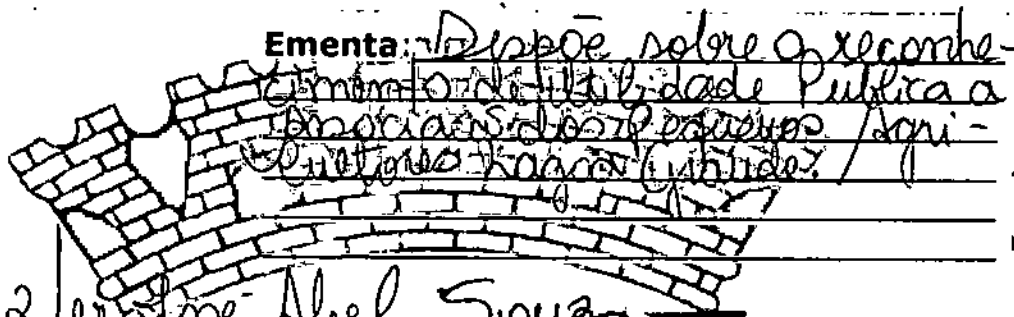 Ementa: Dispõe sobre o reconhe-
cimento de Utilidade Pública a
Associação dos Pequenos Agri-
cultores Lagoa
Abel Souza